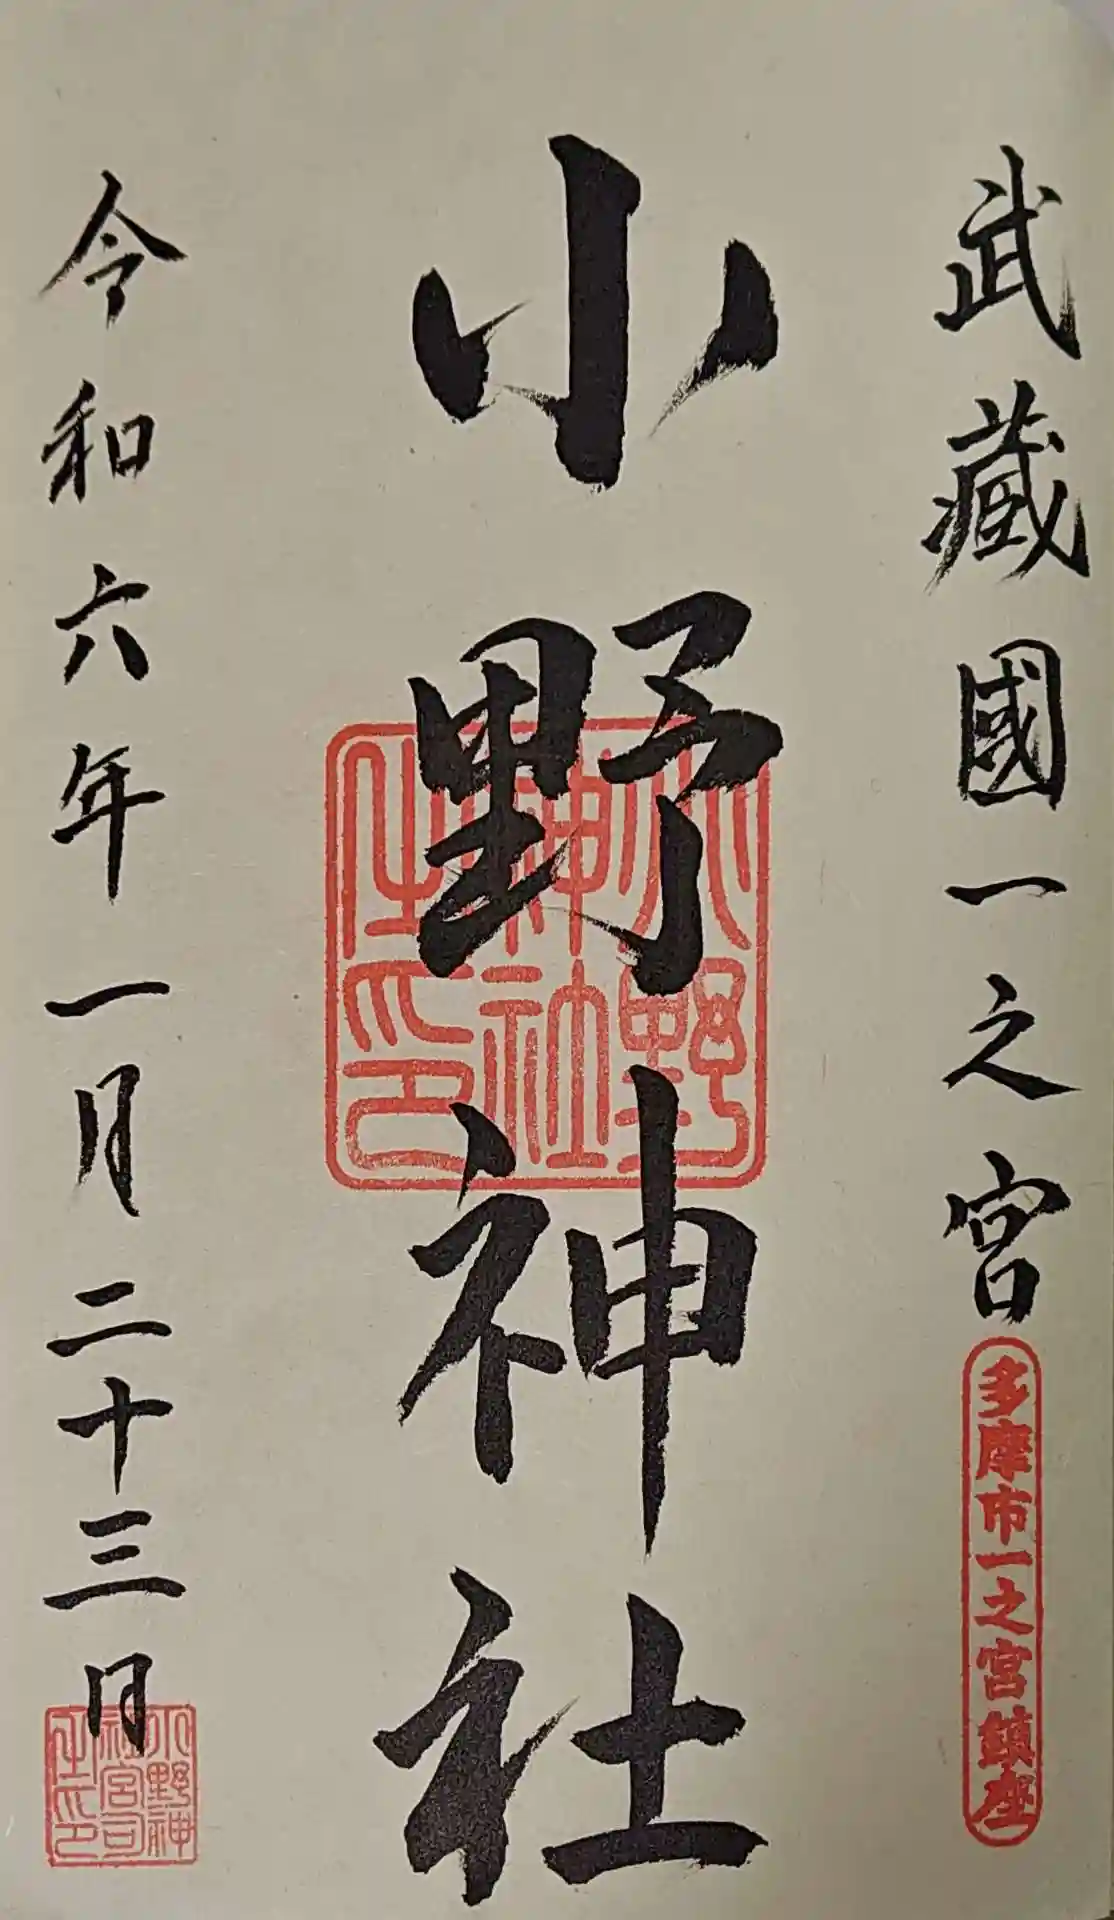 武藏國一之宮
多摩市一之宮鎮座
小野神社
小野神社之印
令和六年一月二十三日
小野神社宮司之印